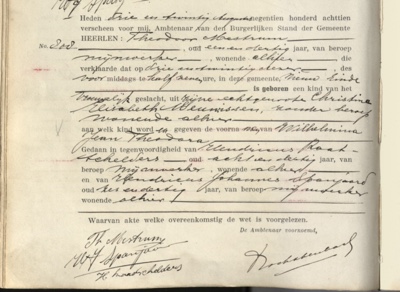 Heden drie en twintig Augustus negentien honderd achttien
verscheen voor mij, Ambtenaar van den Burgerlijken Stand der Gemeente
HEERLEN: Theodoor Mestrum
No. 303 , oud een en dertig jaar, van beroep
mijnwerker , wonende alhier , die
verklaarde dat op drie en twintig dezer , des
voor middags te half negen ure, in deze gemeente,
is geboren een kind van het
Vrouwelijk geslacht, uit zijne echtgenoote Christina
Elisabeth Meuwissen, zonder beroep
wonende alhier
aan welk kind word en gegeven de voornamen van Wilhelmina
Theodora
Gedaan in tegenwoordigheid van HendrikusRaat-
schelders oud acht en dertig jaar, van
beroep mijnwerker , wonende alhier
en van Hendricus Johannes Spanjaard
oud zes en dertig jaar, van beroep mijnwerker
wonende alhier
Waarvan akte welke overeenkomstig de wet is voorgelezen.
De Ambtenaar voornoemd,
Th Mestrum
H. Raatschelders